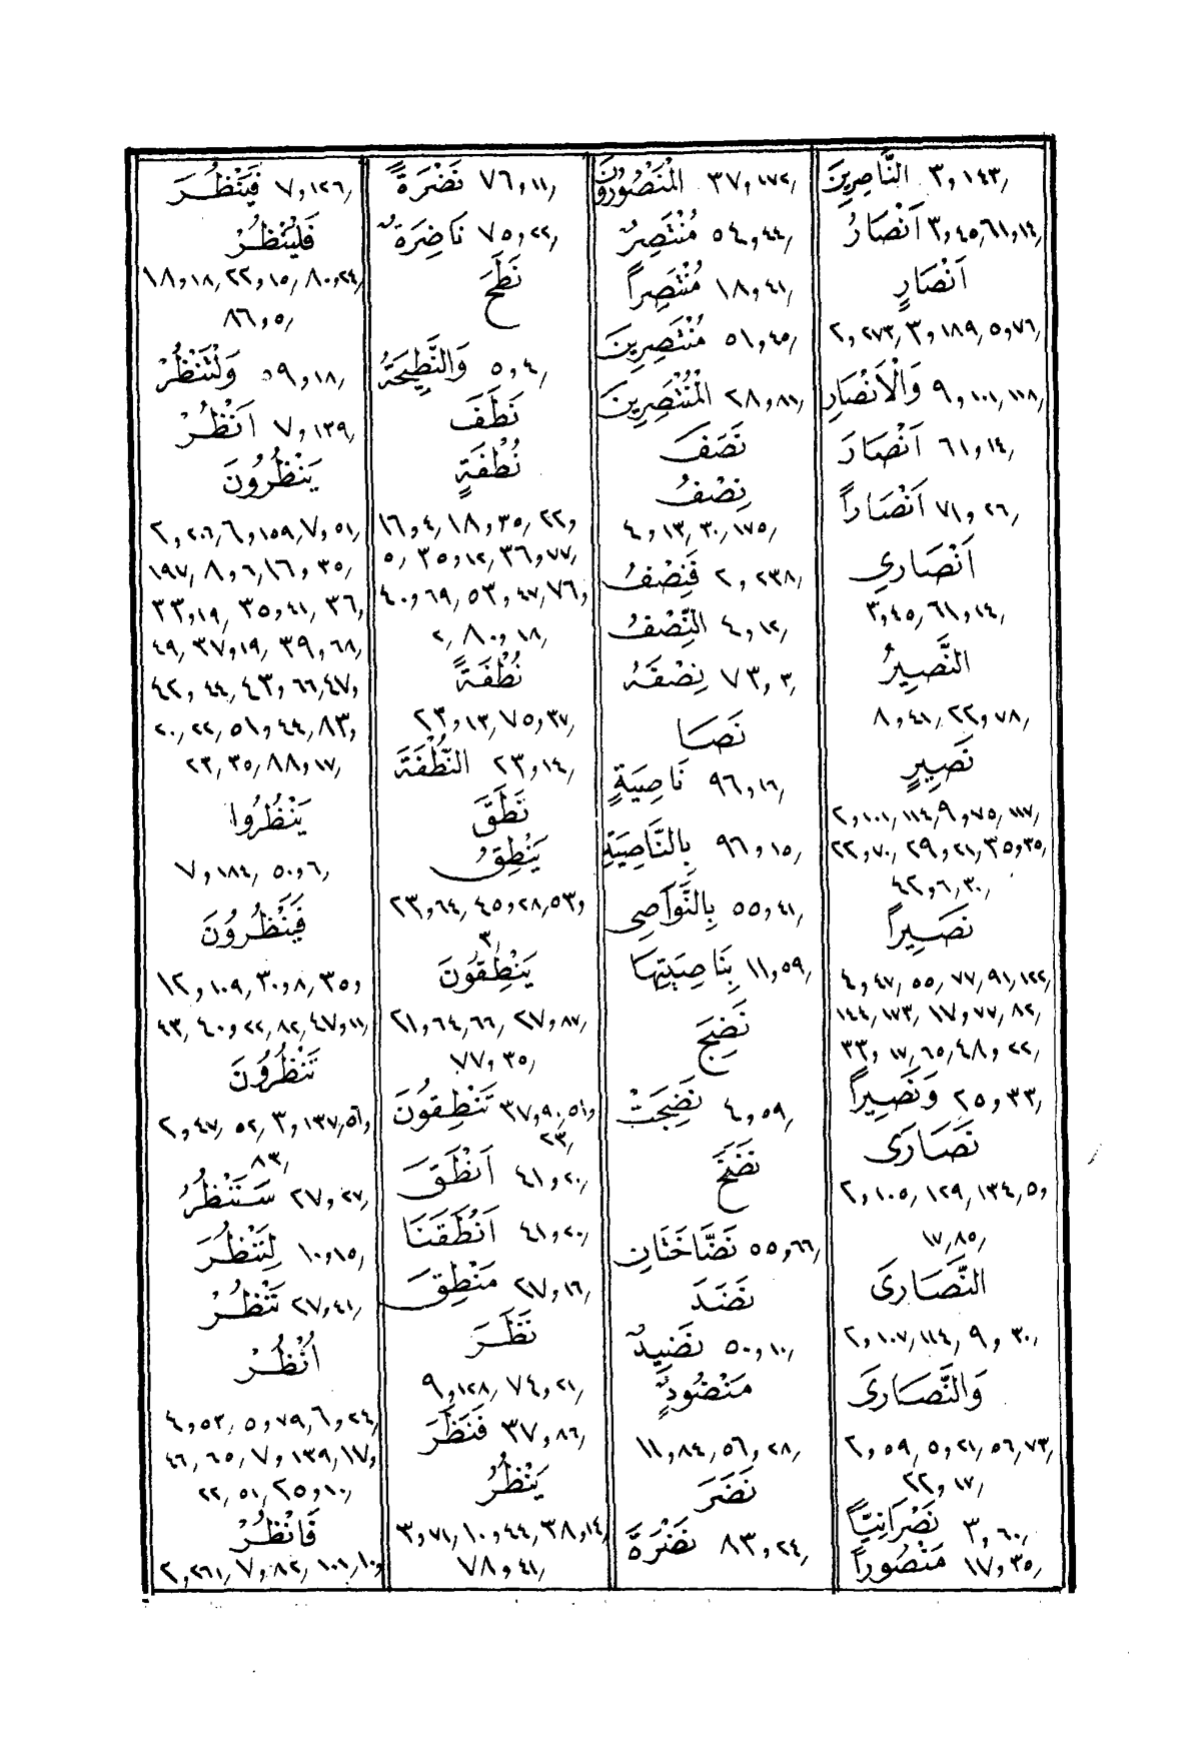 النَّاصِرِينَ ٣,١٤٣,
اَنْصَارُ ٣,٤٥,٦١,١٤,
اَنْصَارٍ
٢,٢٧٣,٣,١٨٩,٥,٧٦,
وَالْاَنْصَارِ ٩,١٠١,١١٨,
اَنْصَارَ ٦١,١٤,
اَنْصَاراً ٧١,٢٦,
اَنْصَارِي
٣,٤٥,٦١,١٤,
النَّصِيرُ
٨,٤١,٢٢,٧٨,
نَصِيرٍ
٢,١٠١,١١٤,٩,٧٥,١١٧,
٢٢,٧٠,٢٩,٢١,٣٥,٣٥,
٤٢,٦,٣٠,
نَصِيراً
٤,٤٧,٥٥,٧٧,٩١,١٢٢,
١٤٤,١٧٣,١٧,٧٧,٨٢,
٣٣,١٧,٦٥,٤٨,٢٢,
وَنَصِيراً ٢٥,٣٣,
نَصَارَى
٢,١٠٥,١٢٩,١٣٤,٥,
١٧,٨٥,
النَّصَارَى
٢,١٠٧,١١٤,٩,٣٠,
وَالنَّصَارَى
٢,٥٩,٥,٢١,٥٦,٧٣,
٢٢,١٧,
نَصْرَانِيّاً ٣,٦٠,
مَنْصُوراً ١٧,٣٥,
الْمَنْصُورُونَ ٣٧,١٧٢,
مُنْتَصِرٌ ٥٤,٤٤,
مُنْتَصِراً ١٨,٤١,
مُنْتَصِرِينَ ٥١,٤٥,
الْمُنْتَصِرِينَ ٢٨,٨١,
نَصَفَ
نِصْفُ
٤,١٣,٣٠,١٧٥,
فَنِصْفُ ٢,٢٣٨,
النِّصْفُ ٤,١٢,
نِصْفَهُ ٧٣,٣,
نَصَا
نَاصِيَةٍ ٩٦,١٦,
بِالنَّاصِيَةِ ٩٦,١٥,
بِالنَّوَاصِى ٥٥,٤١,
بِنَاصِيَتِهَا ١١,٥٩,
نَضِجَ
نَضِجَتْ ٤,٥٩,
نَضَخَ
نَضَّاخَتَانِ ٥٥,٦٦,
نَضَدَ
نَضِيدٌ ٥٠,١٠,
مَنْضُودٍ
١١,٨٤,٥٦,٢٨,
نَضَرَ
نَضْرَةَ ٨٣,٢٤,
نَضْرَةً ٧٦,١١,
نَاضِرَةٌ ٧٥,٢٢,
نَطَحَ
وَالنَّطِيحَةُ ٥,٤,
نَطَفَ
نُطْفَةٍ
١٦,٤,١٨,٣٥,٢٢,
٥,٣٥,١٢,٣٦,٧٧,
٤٠,٦٩,٥٣,٤٧,٧٦,
٢,٨٠,١٨,
نُطْفَةً
٢٣,١٣,٧٥,٣٧,
النُّطْفَةَ ٢٣,١٤,
نَطَقَ
يَنْطِقُ
٢٣,٦٤,٤٥,٢٨,٥٣,
٣,
يَنْطِقُونَ
٢١,٦٤,٦٦,٢٧,٨٧,
٧٧,٣٥,
تَنْطِقُونَ ٣٧,٩٠,٥١,
٢٣,
اَنْطَقَ ٤١,٢٠,
اَنْطَقَنَا ٤١,٢٠,
مَنْطِقَ ٢٧,١٦,
نَظَرَ
٩,١٢٨,٧٤,٢١,
فَنَظَرَ ٣٧,٨٦,
يَنْظُرُ
٣,٧١,١٠,٤٤,٣٨,١٤,
٧٨,٤١,
فَيَنْظُرَ ٧,١٢٦,
فَلْيَنْظُرْ
١٨,١٨,٢٢,١٥,٨٠,٢٤,
٨٦,٥,
وَلْتَنْظُرْ ٥٩,١٨,
اَنْظُرْ ٧,١٣٩,
يَنْظُرُونَ
٢,٢٠٦,٦,١٥٩,٧,٥١,
١٩٧,٨,٦,١٦,٣٥,
٣٣,١٩,٣٥,٤١,٣٦,
٤٩,٣٧,١٩,٣٩,٦٨,
٤٢,٤٤,٤٣,٦٦,٤٧,
٢٠,٢٢,٥١,٤٤,٨٣,
٢٣,٣٥,٨٨,١٧,
يَنْظُرُوا
٧,١٨٤,٥٠,٦,
فَيَنْظُرُونَ
١٢,١٠٩,٣٠,٨,٣٥,
٤٣,٤٠,٢٢,٨٢,٤٧,١١,
تَنْظُرُونَ
٢,٤٧,٥٢,٣,١٣٧,٥٦,
٨٣,
سَنَنْظُرُ ٢٧,٢٧,
لِنَنْظُرَ ١٠,١٥,
نَنْظُرْ ٢٧,٤١,
اُنْظُرْ
٤,٥٣,٥,٧٩,٦,٢٤,
٤٦,٦٥,٧,١٣٩,١٧,
٢٢,٥١,٢٥,١٠,
فَانْظُرْ
٢,٢٦١,٧,٨٢,١٠١,١٠,